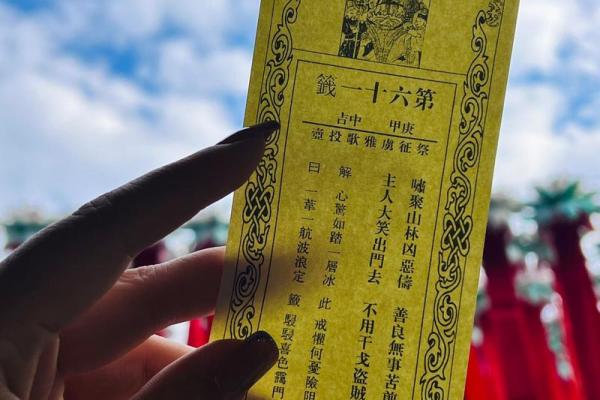 第六十一籤
庚甲 中吉
祭征虜雅歌投壺
嘯聚山林凶惡儔 善良無事苦
主人大笑出門去 不用干戈盜賊
解 心驚如踏一層冰 此 戒懼何憂險
曰 一葦一航波浪定 籤 駸駸喜色靄門